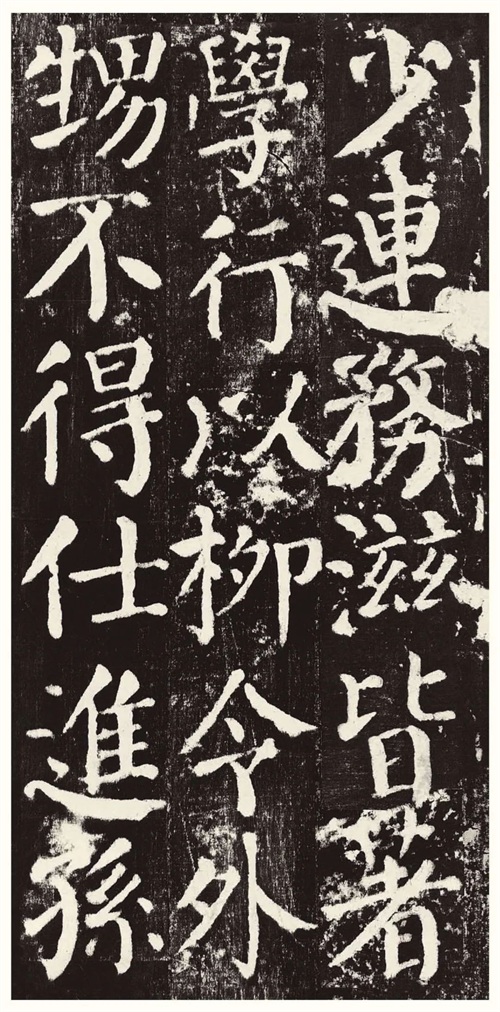 少連務滋皆著
學行以柳令外
甥不得仕進孫